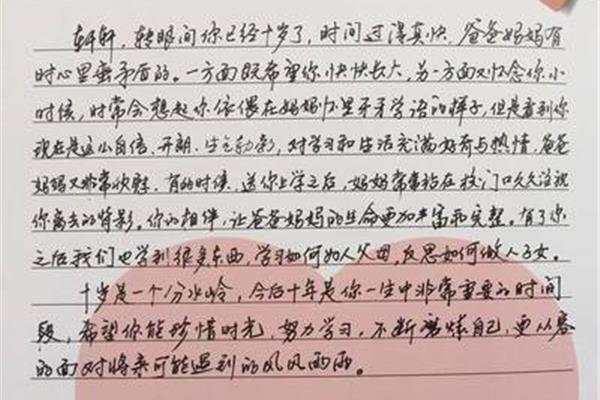 轩轩，转眼间你已经十岁了，时间过得真快。爸爸妈妈有
时心里蛮矛盾的。一方面既希望你快快长大，另一方面又怀念你小
时候，时常会想起你依偎在妈妈怀里牙牙学语的样子，但是看到你
现在是这么自信、开朗、生气勃勃，对学习和生活充满好奇与热情，爸爸
妈妈又非常欣慰。有的时候，送你上学之后，妈妈常常站在校门口久久注视
你离去的背影。你的相伴，让爸爸妈妈的生命更加丰富和完整。有了你
之后我们也学到很多东西，学习如何如人父母，反思如何做人子女。
十岁是一个分水岭，今后十年是你一生中非常重要的时间
段，希望你能珍惜时光，努力学习，不断磨炼自己，更从容
的面对将来可能遇到的风风雨雨。